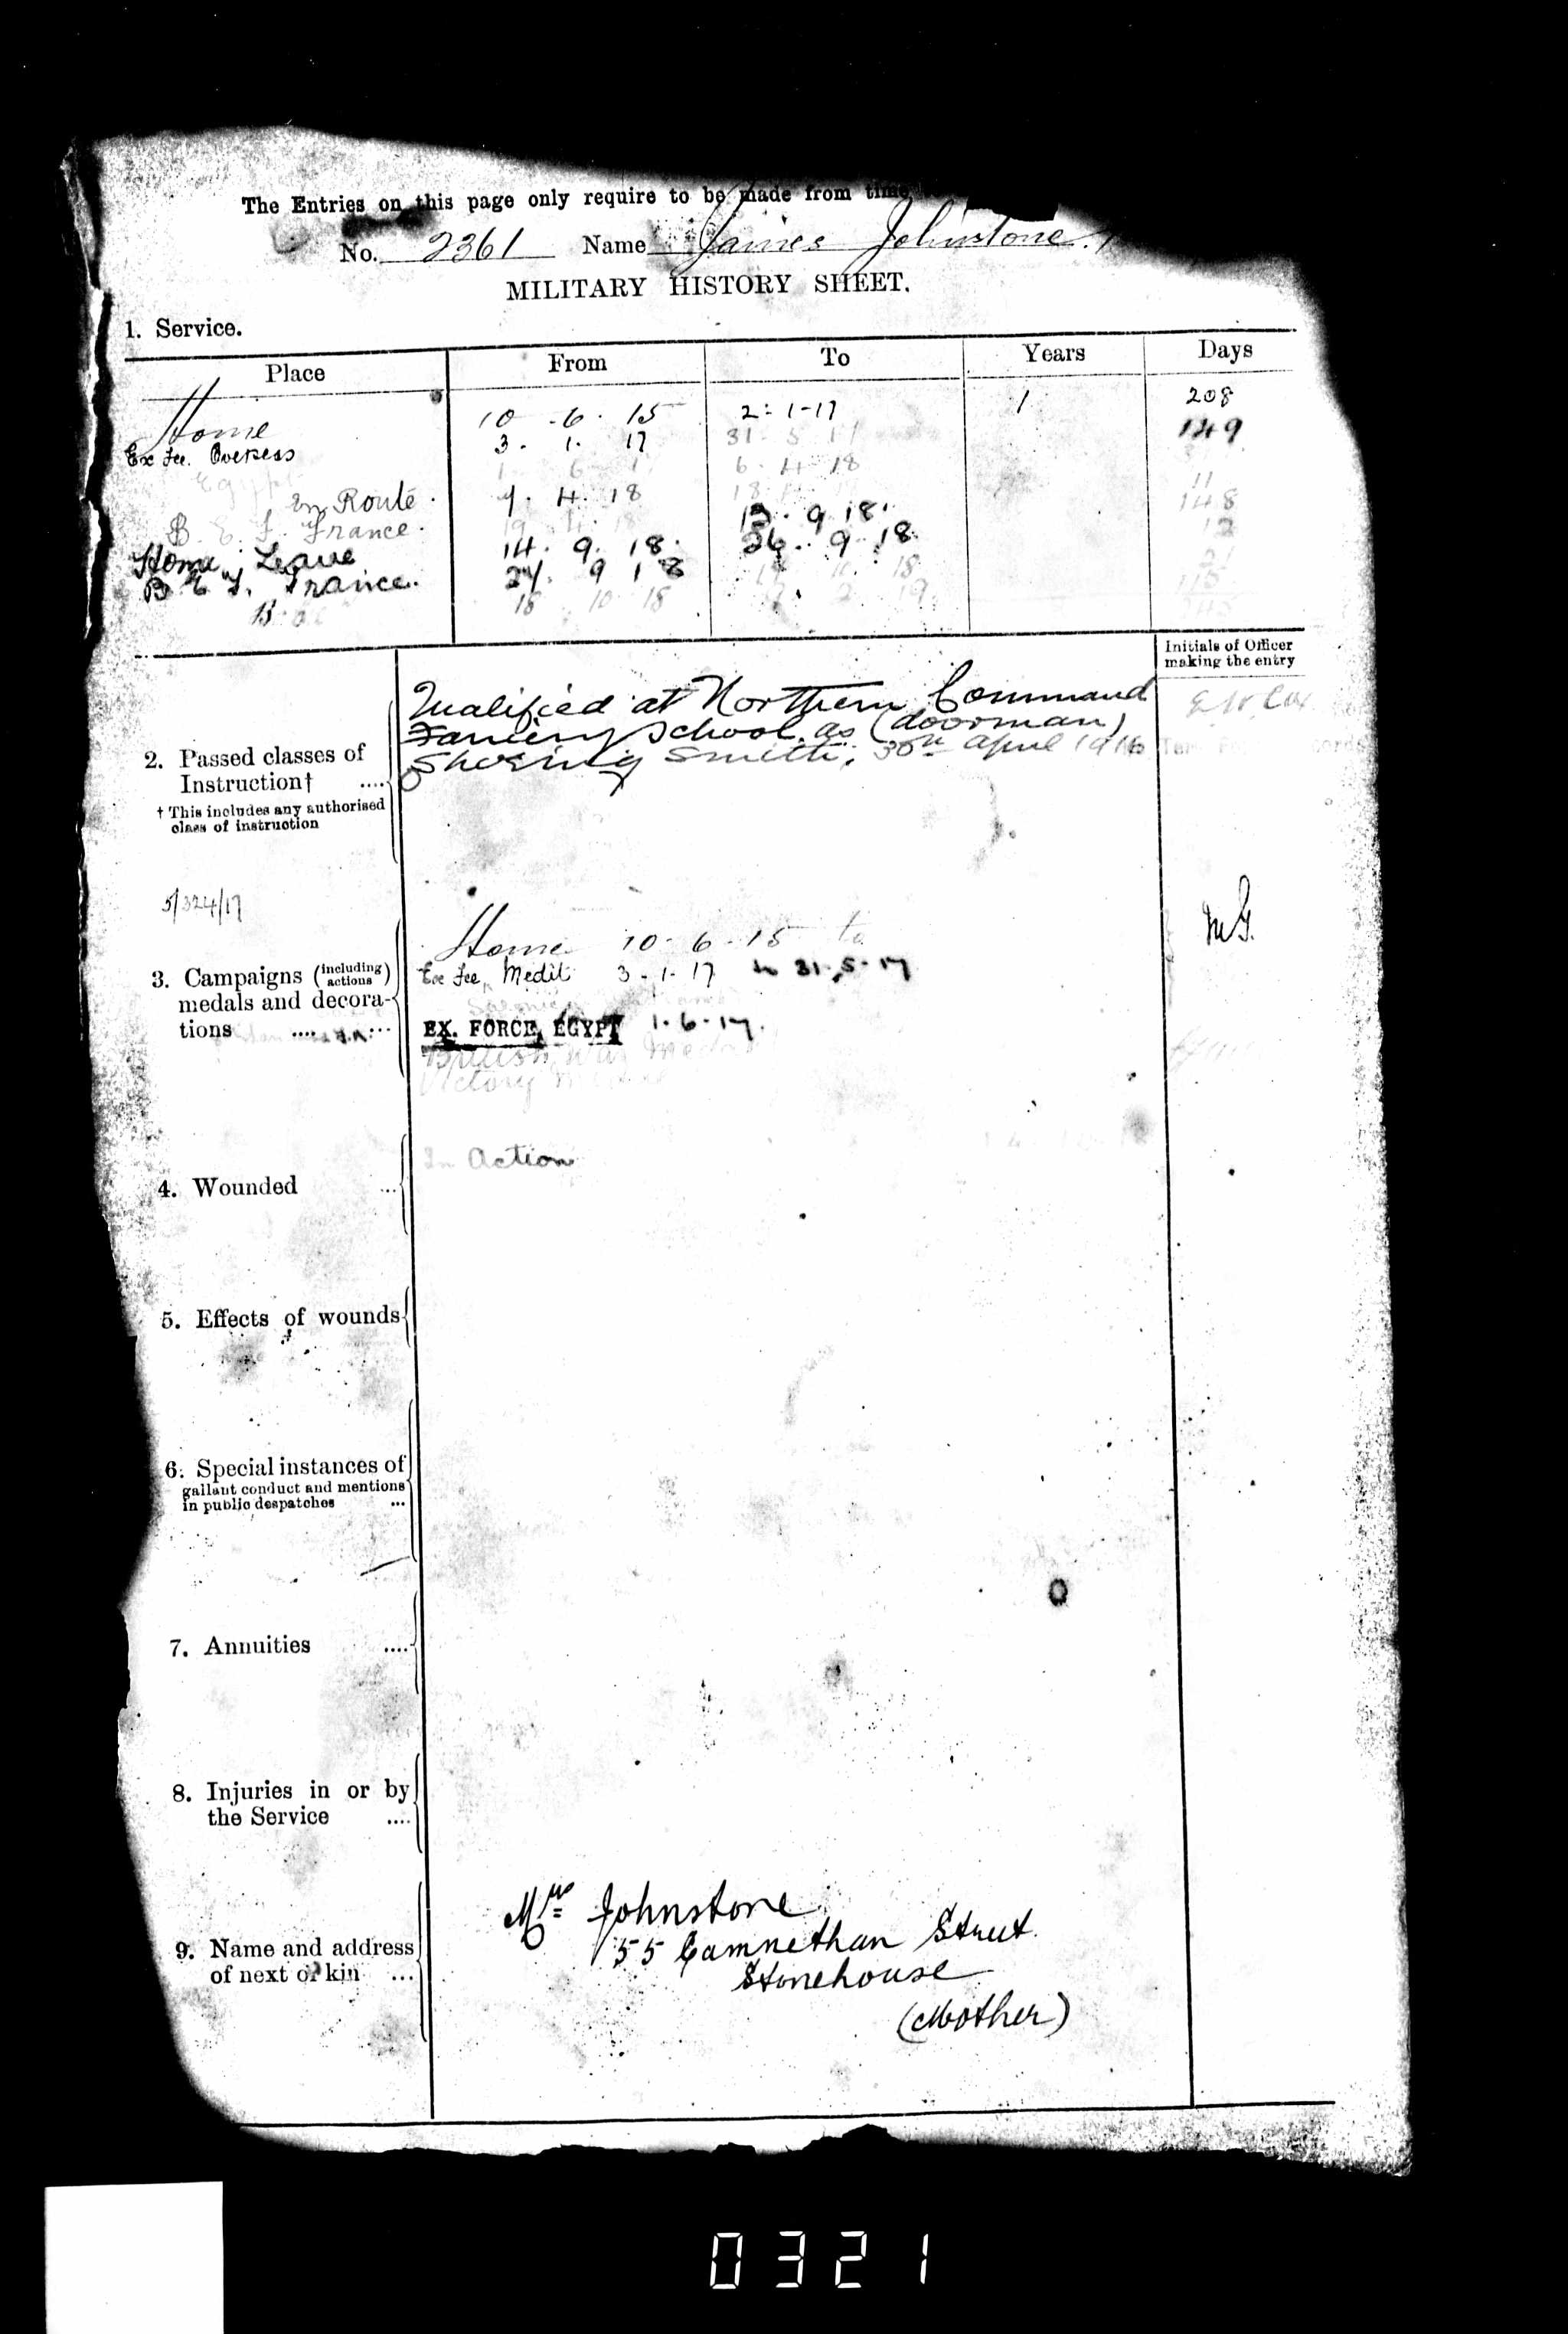 The Entries on this page only require to be made from time
No. 2361 Name James Johnstone
MILITARY HISTORY SHEET.
1. Service.
Place From To Years Days
Home 10 . 6 . 15 2 . 1 - 17 1 208
Ex Fce. Overseas 3 . 1 . 17 31 . 5 17 149
Egypt 1 6 17 6 . 4 18
En Route . 7 . 4 . 18 18 11
B. E. F. France . 19 4 . 18 13 . 9 18 . 148
Home Leave 14 . 9 . 18 . 26 . 9 . 18 12
B E F. France . 27 . 9 18 17 10 18 21
18 10 18 2 19
Initials of Officer
making the entry
Qualified at Northern Command
Farriery School as (doorman)
Shoeing Smith, 30th April 1916
2. Passed classes of
Instruction† ....
† This includes any authorised
class of instruction
5/324/17
Home 10 - 6 - 15 to
3. Campaigns (including actions) Ex Fce, Medit 3 - 1 - 17 to 31 . 5 - 17
medals and decora-
tions .... ...
EX. FORCE, EGYPT 1 - 6 - 17 .
British War Medal
Victory Medal
In Action
4. Wounded ...
5. Effects of wounds
6. Special instances of
gallant conduct and mentions
in public despatches ...
7. Annuities ....
8. Injuries in or by
the Service ....
Mrs Johnstone
55 Camnethan Street
9. Name and address
of next of kin ...
Stonehouse
(Mother)
0321